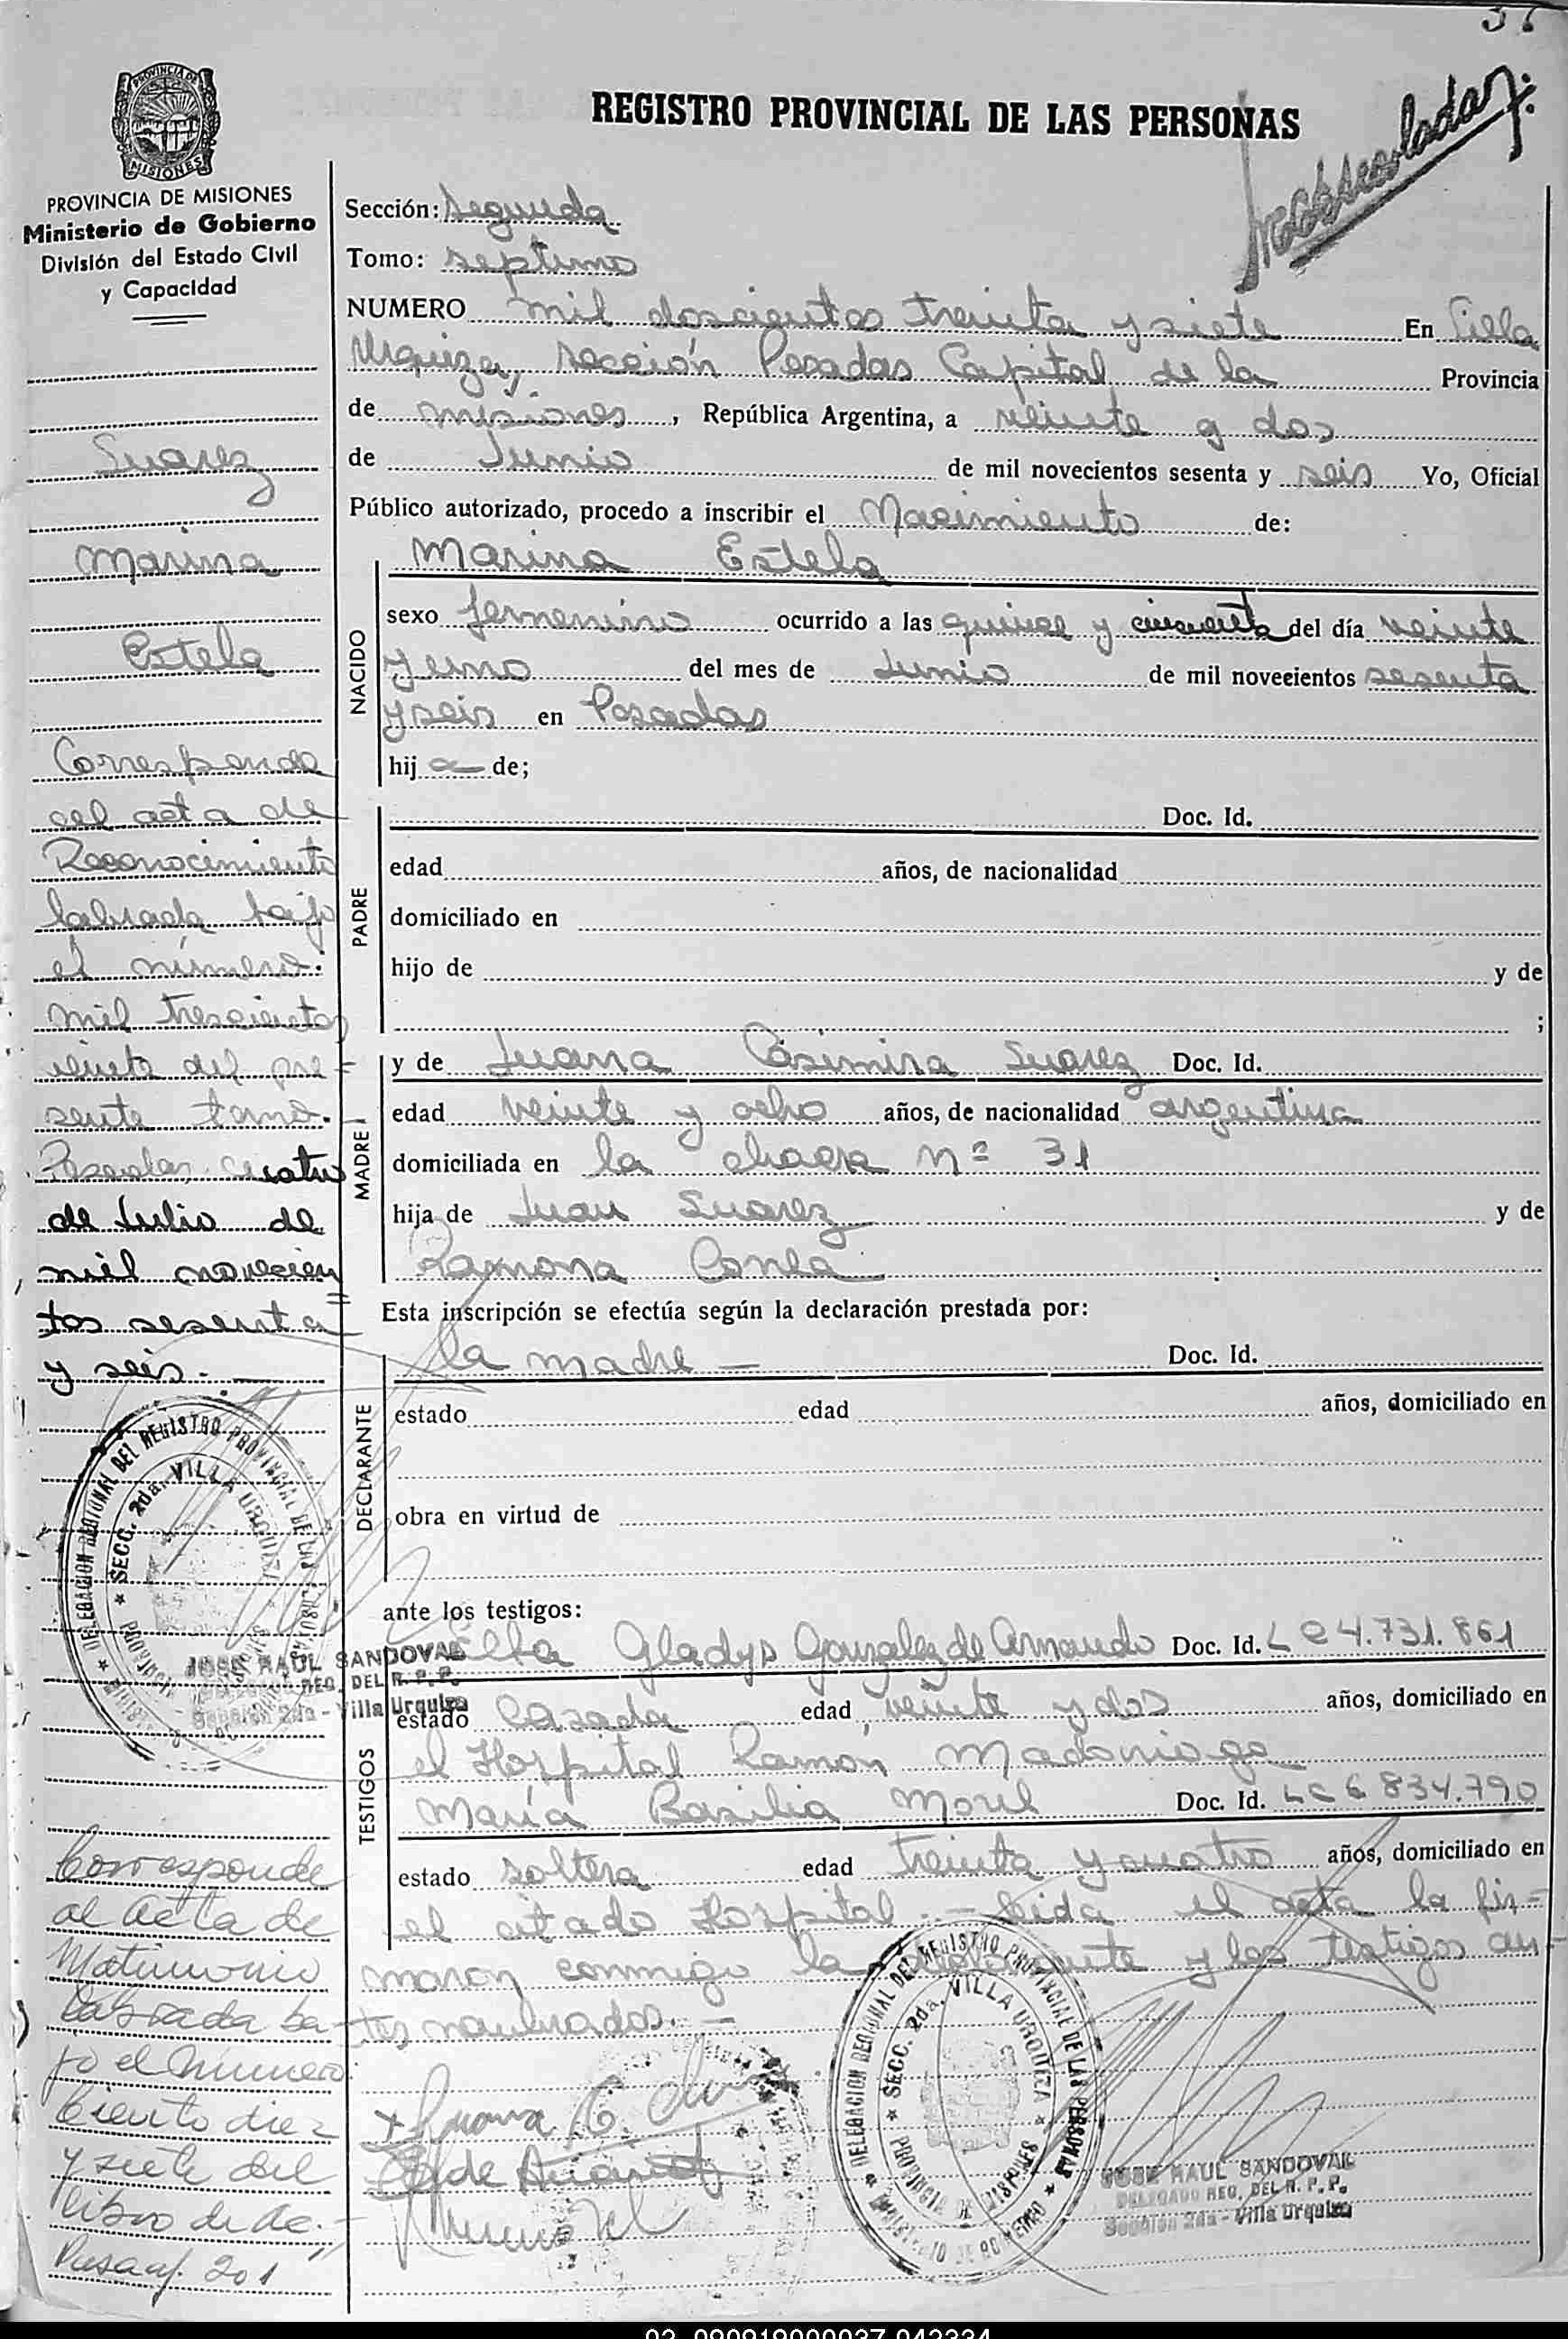 REGISTRO PROVINCIAL DE LAS PERSONAS
PROVINCIA DE
MISIONES
PROVINCIA DE MISIONES
Ministerio de Gobierno
División del Estado Civil
y Capacidad
Suarez
Marina
Estela
Corresponde
al acta de
Reconocimiento
labrada bajo
el número:
mil trescientos
del pre=
sente tomo.
Posadas, cuatro
de Julio de
mil novecien
tos sesenta
y seis.-
Corresponde
al acta de
Matrimonio
labrada ba-
jo el número
Ciento diez
y siete del
libro de
201
Sección: Segunda
Tomo: septimo
NUMERO mil doscientos treinta y siete En Villa
Urquiza, sección Posadas Capital de la Provincia
de misiones, República Argentina, a veinte y dos
de Junio de mil novecientos sesenta y seis Yo, Oficial
Público autorizado, procedo a inscribir el Nacimiento de:
NACIDO
Marina Estela
sexo femenino ocurrido a las quince y cincuenta del día veinte
y uno del mes de Junio de mil novecientos sesenta
y seis en Posadas
hij a de;
PADRE
Doc. Id.
edad años, de nacionalidad
domiciliado en
hijo de y de
;
MADRE
y de Juana Casimira Suarez Doc. Id.
edad veinte y ocho años, de nacionalidad argentina
domiciliada en la chacra Nº 31
hija de Juan Suarez y de
Ramona
Esta inscripción se efectúa según la declaración prestada por:
DECLARANTE
la madre — Doc. Id.
estado edad años, domiciliado en
obra en virtud de
ante los testigos:
TESTIGOS
Elba Gladys Gonzalez de Doc. Id. L C 4.731.861
estado Casada edad veinte y dos años, domiciliado en
el Hospital Ramón Madariaga
María Basilia Doc. Id. L C 6 834.790
estado soltera edad treinta y cuatro años, domiciliado en
el citado Hospital.- Leida el acta la fir=
maron conmigo la declarante y los testigos an-
tes nombrados.-
DELEGACION REGIONAL DEL REGISTRO PROVINCIAL DE LAS PERSONAS
SECC. 2da. VILLA URQUIZA
PROVINCIA DE MISIONES
JOSE RAUL SANDOVAL
DELEGADO REG. DEL R. P. P.
Sección 2da - Villa Urquiza
DELEGACION REGIONAL DEL REGISTRO PROVINCIAL DE LAS PERSONAS
SECC. 2da. VILLA URQUIZA
PROVINCIA DE MISIONES
MINISTERIO DE GOBIERNO
JOSE RAUL SANDOVAL
DELEGADO REG. DEL R. P. P.
Sección 2da - Villa Urquiza